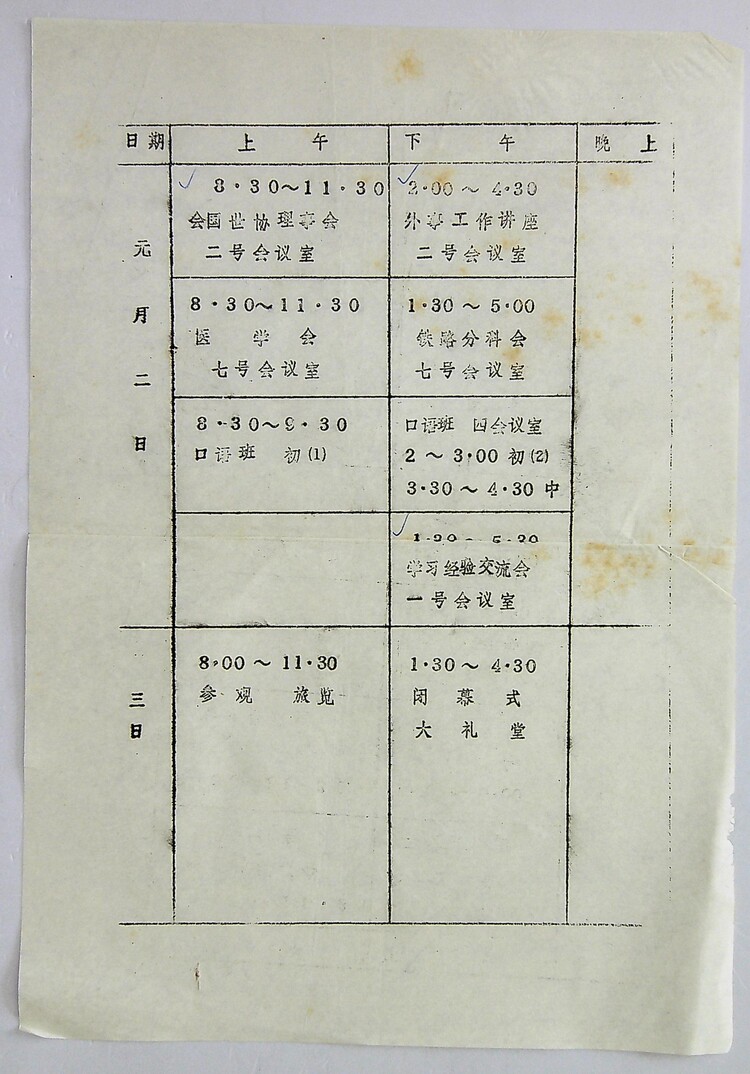 日期 上午 下午 晚上
元月二日
8·30～11·30
会国世协理事会
二号会议室
2·00～4·30
外事工作讲座
二号会议室
8·30～11·30
医学会
七号会议室
1·30～5·00
铁路分科会
七号会议室
8·30～9·30
口语班 初(1)
口语班 四会议室
2～3·00初(2)
3·30～4·30中
学习经验交流会
一号会议室
三日
8·00～11·30
参观 旅览
1·30～4·30
闭幕式
大礼堂